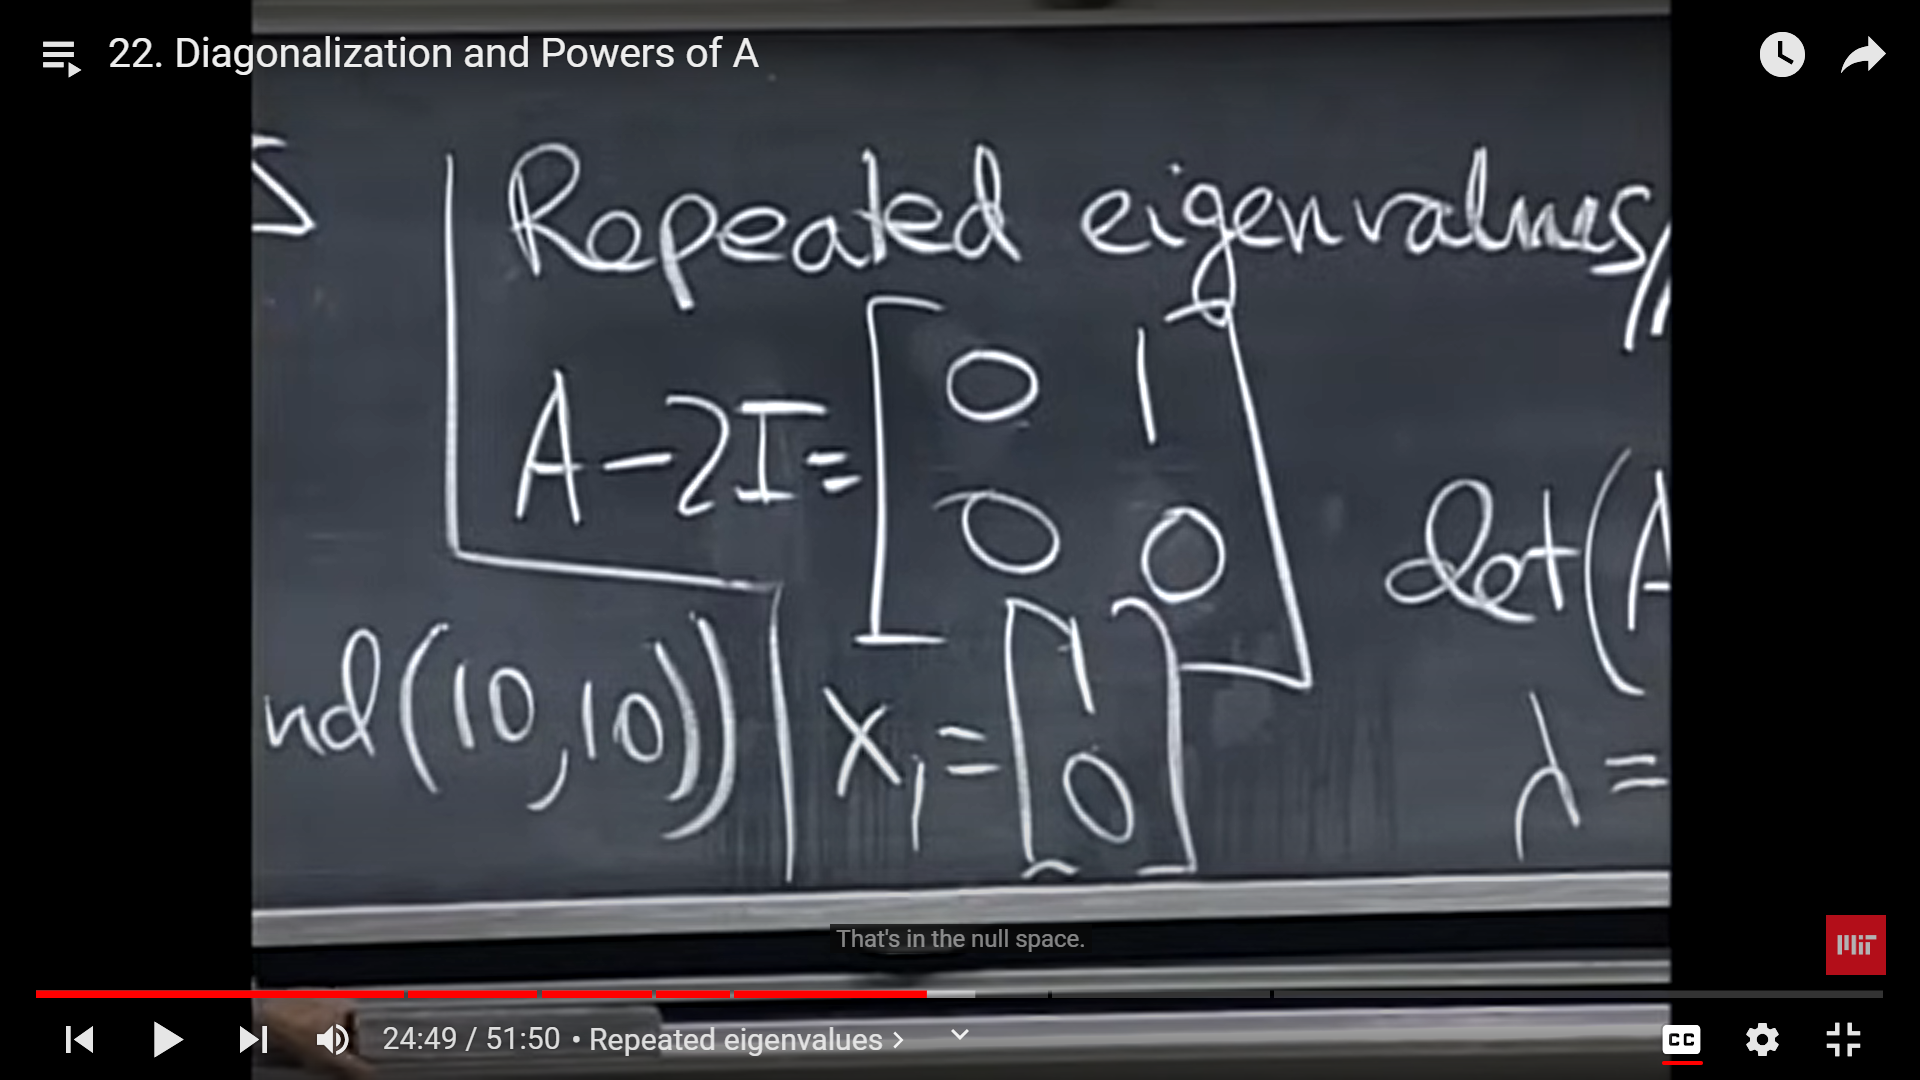 22. Diagonalization and Powers of A
Repeated eigenvalues
A-2I=[0 1
0 0]
det(A
nd(10,10))
x₁=[1
0]
λ=
That's in the null space.
MiT
24:49 / 51:50 • Repeated eigenvalues >
CC